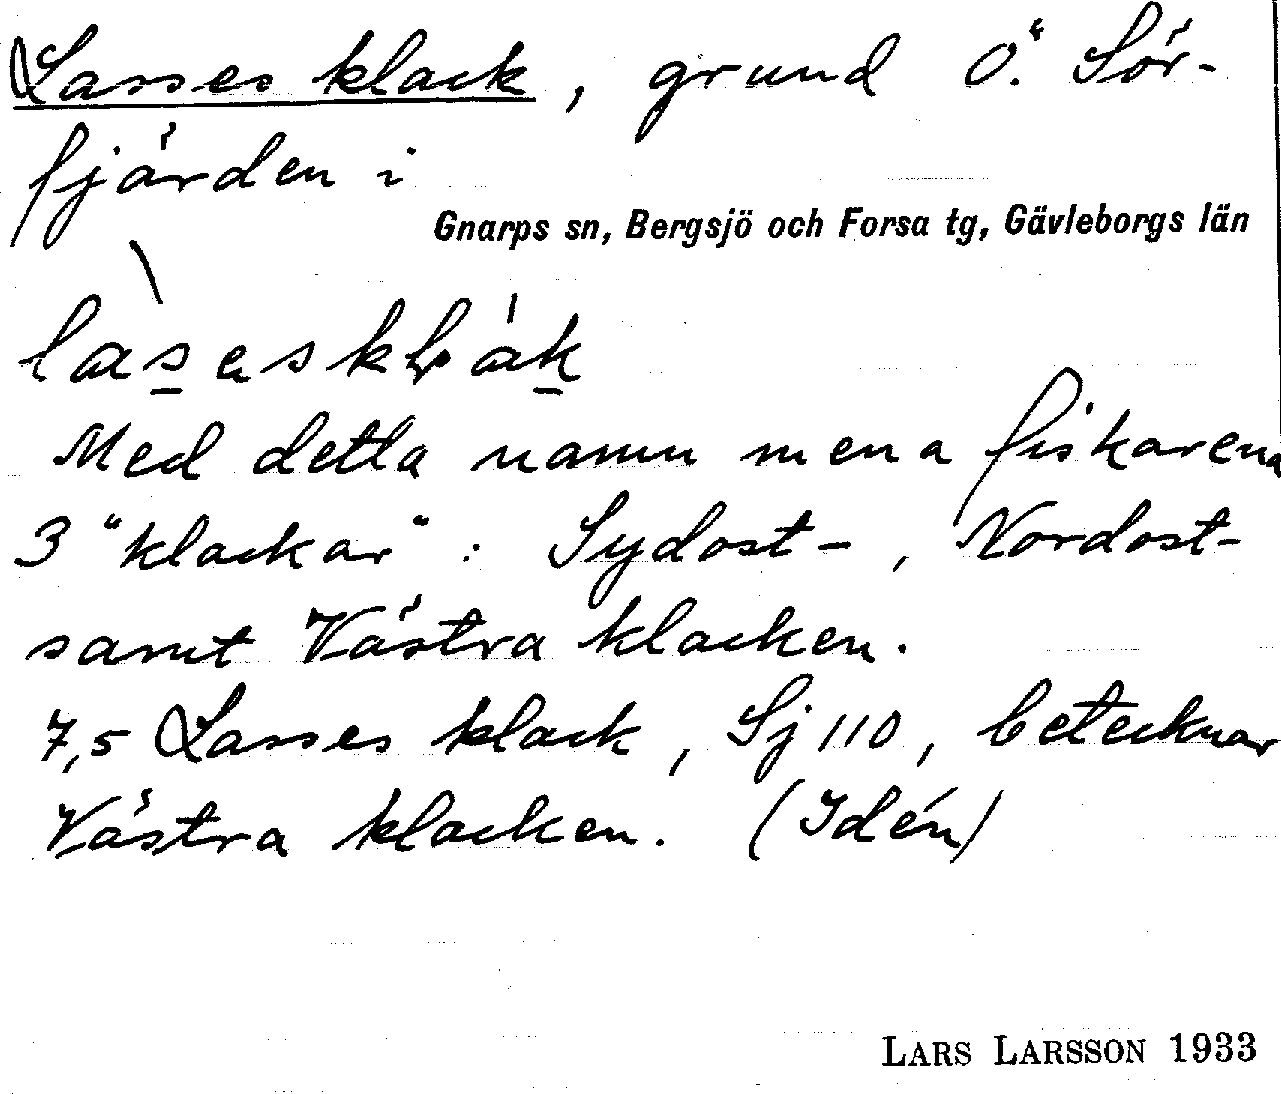 Lasses klack, grund Ö. Sör-
fjärden i
Gnarps sn, Bergsjö och Forsa tg, Gävleborgs län
Med detta namn mena fiskarena
3 "klackar": Sydost-, Nordost-
samt Västra klacken.
7,5 Lasses klack, Sj 110, betecknar
Västra klacken. (Idén)
LARS LARSSON 1933